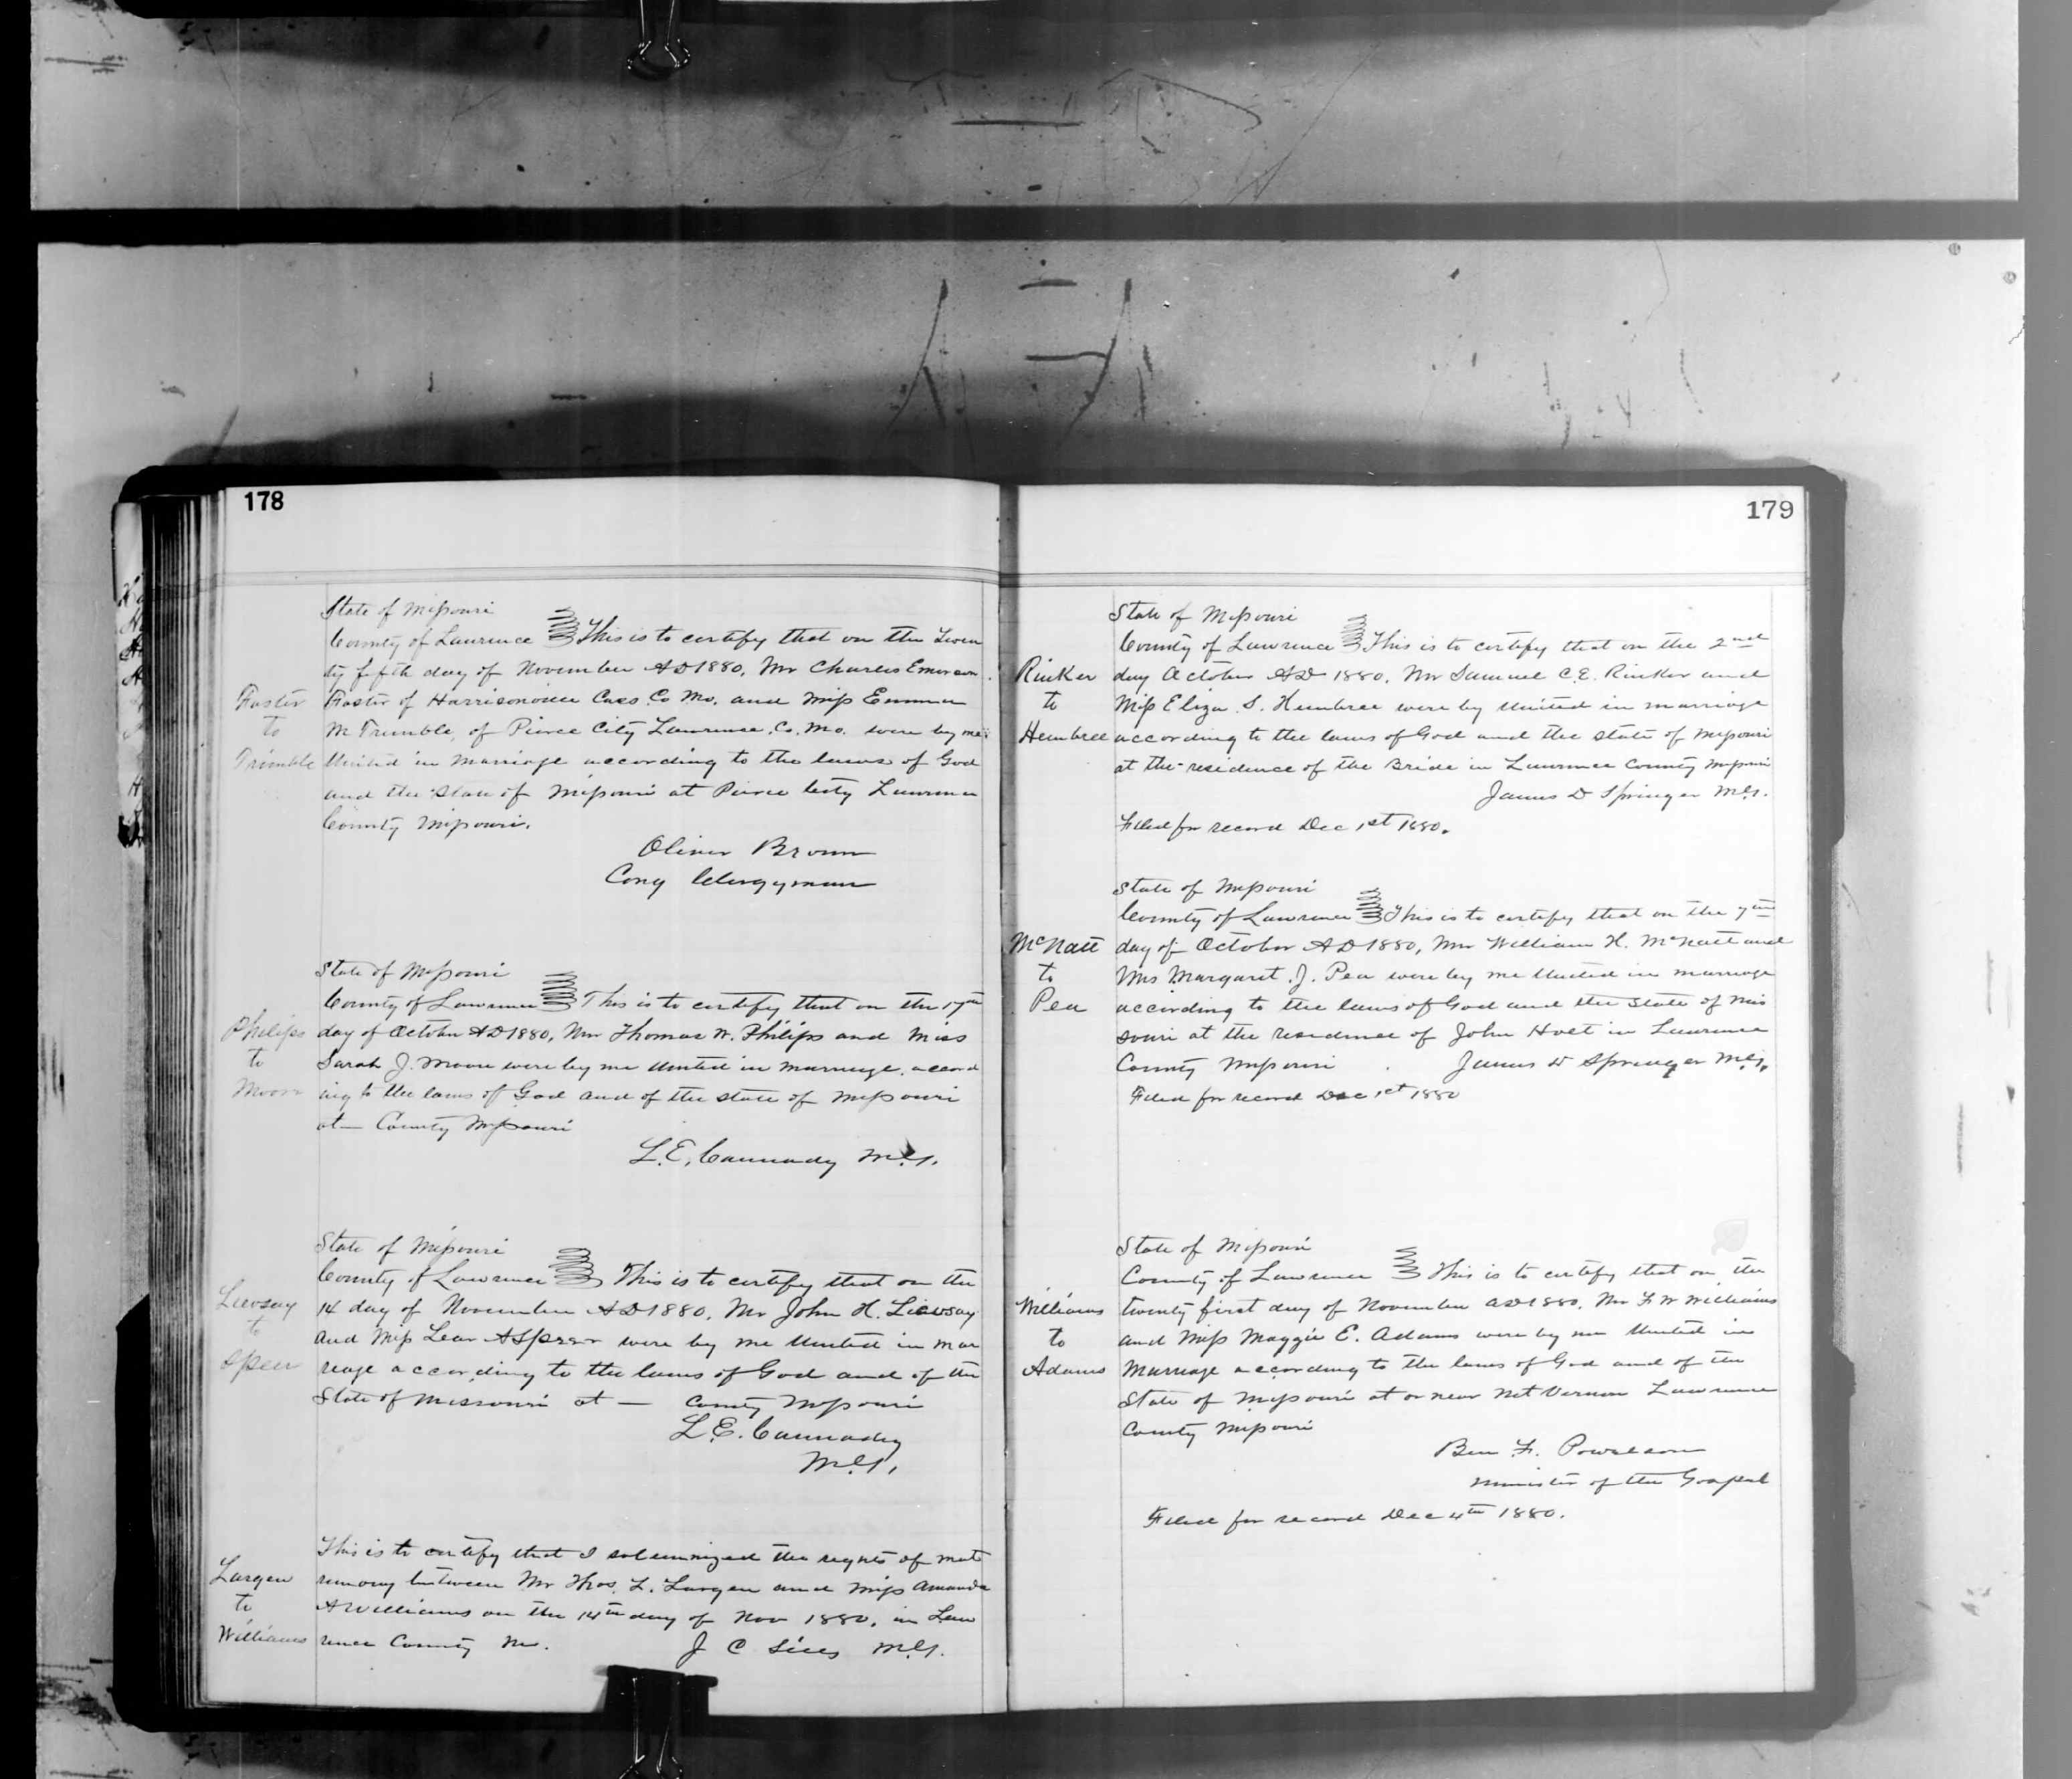 178
State of Missouri
County of Lawrence This is to certify that on the Twen
ty fifth day of November AD 1880, Mr Charles Emerson
Foster Foster of Harrisonville Cass Co Mo. and Miss Emma
to M Trimble, of Pierce City Lawrence, Co. Mo. were by me
Trimble United in marriage according to the laws of God
and the State of Missouri at Peirce City Lawrence
County Missouri.
Oliver Brown
Cong Clergyman
State of Missouri
County of Lawrence This is to certify that on the 17th
Philips day of October AD 1880, Mr Thomas W. Philips and Miss
to Sarah J. Moore were by me United in marriage, accord
Moore ing to the laws of God and of the state of Missouri
at — County Missouri
L. E. Cannady M.G.
State of Missouri
County of Lawrence This is to certify that on the
Lievsay 14 day of November AD 1880, Mr John H. Lievsay
to and Miss Lear A Speer were by me United in mar
Speer reage according to the laws of God and of the
State of Missouri at — County Missouri
L. E. Cannady
M.G.
This is to certify that I solemnized the reguts of mat
Largen remony between Mr Thos. L. Largen and Miss Amanda
to A Williams on the 14th day of Nov 1880, in Law
Williams rence County Mo. J C Sides M.G.
179
State of Missouri
County of Lawrence This is to certify that on the 2nd
Rinker day October AD 1880, Mr Samuel C. E. Rinker and
to Miss Eliza S. Hembree were by United in marriage
Hembree according to the laws of God and the state of Missouri
at the residence of the Bride in Lawrence County Missouri
James D Springer M.G.
Filed for record Dec 1st 1880.
State of Missouri
County of Lawrence This is to certify that on the 7th
McNatt day of October AD 1880, Mr William H. McNatt and
to Mrs Margaret. J. Pea were by me United in marriage
Pea according to the laws of God and the State of Mis
souri at the residence of John Holt in Lawrence
County Missouri James D Springer M.G.
Filed for record Dec 1st 1880
State of Missouri
County of Lawrence This is to certify that on the
Williams twenty first day of November AD 1880, Mr F. W Williams
to and Miss Maggie E. Adams were by me United in
Adams Marriage according to the laws of God and of the
State of Missouri at or near Mt Vernon Lawrence
County Missouri
Ben F. Powelson
Minister of the Gospel
Filed for record Dec 4th 1880.